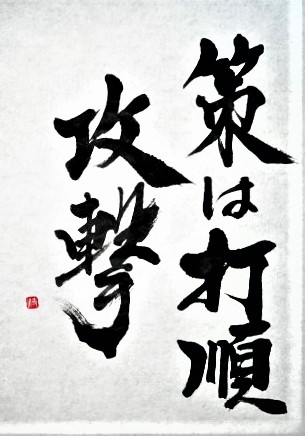 策は打順
攻撃